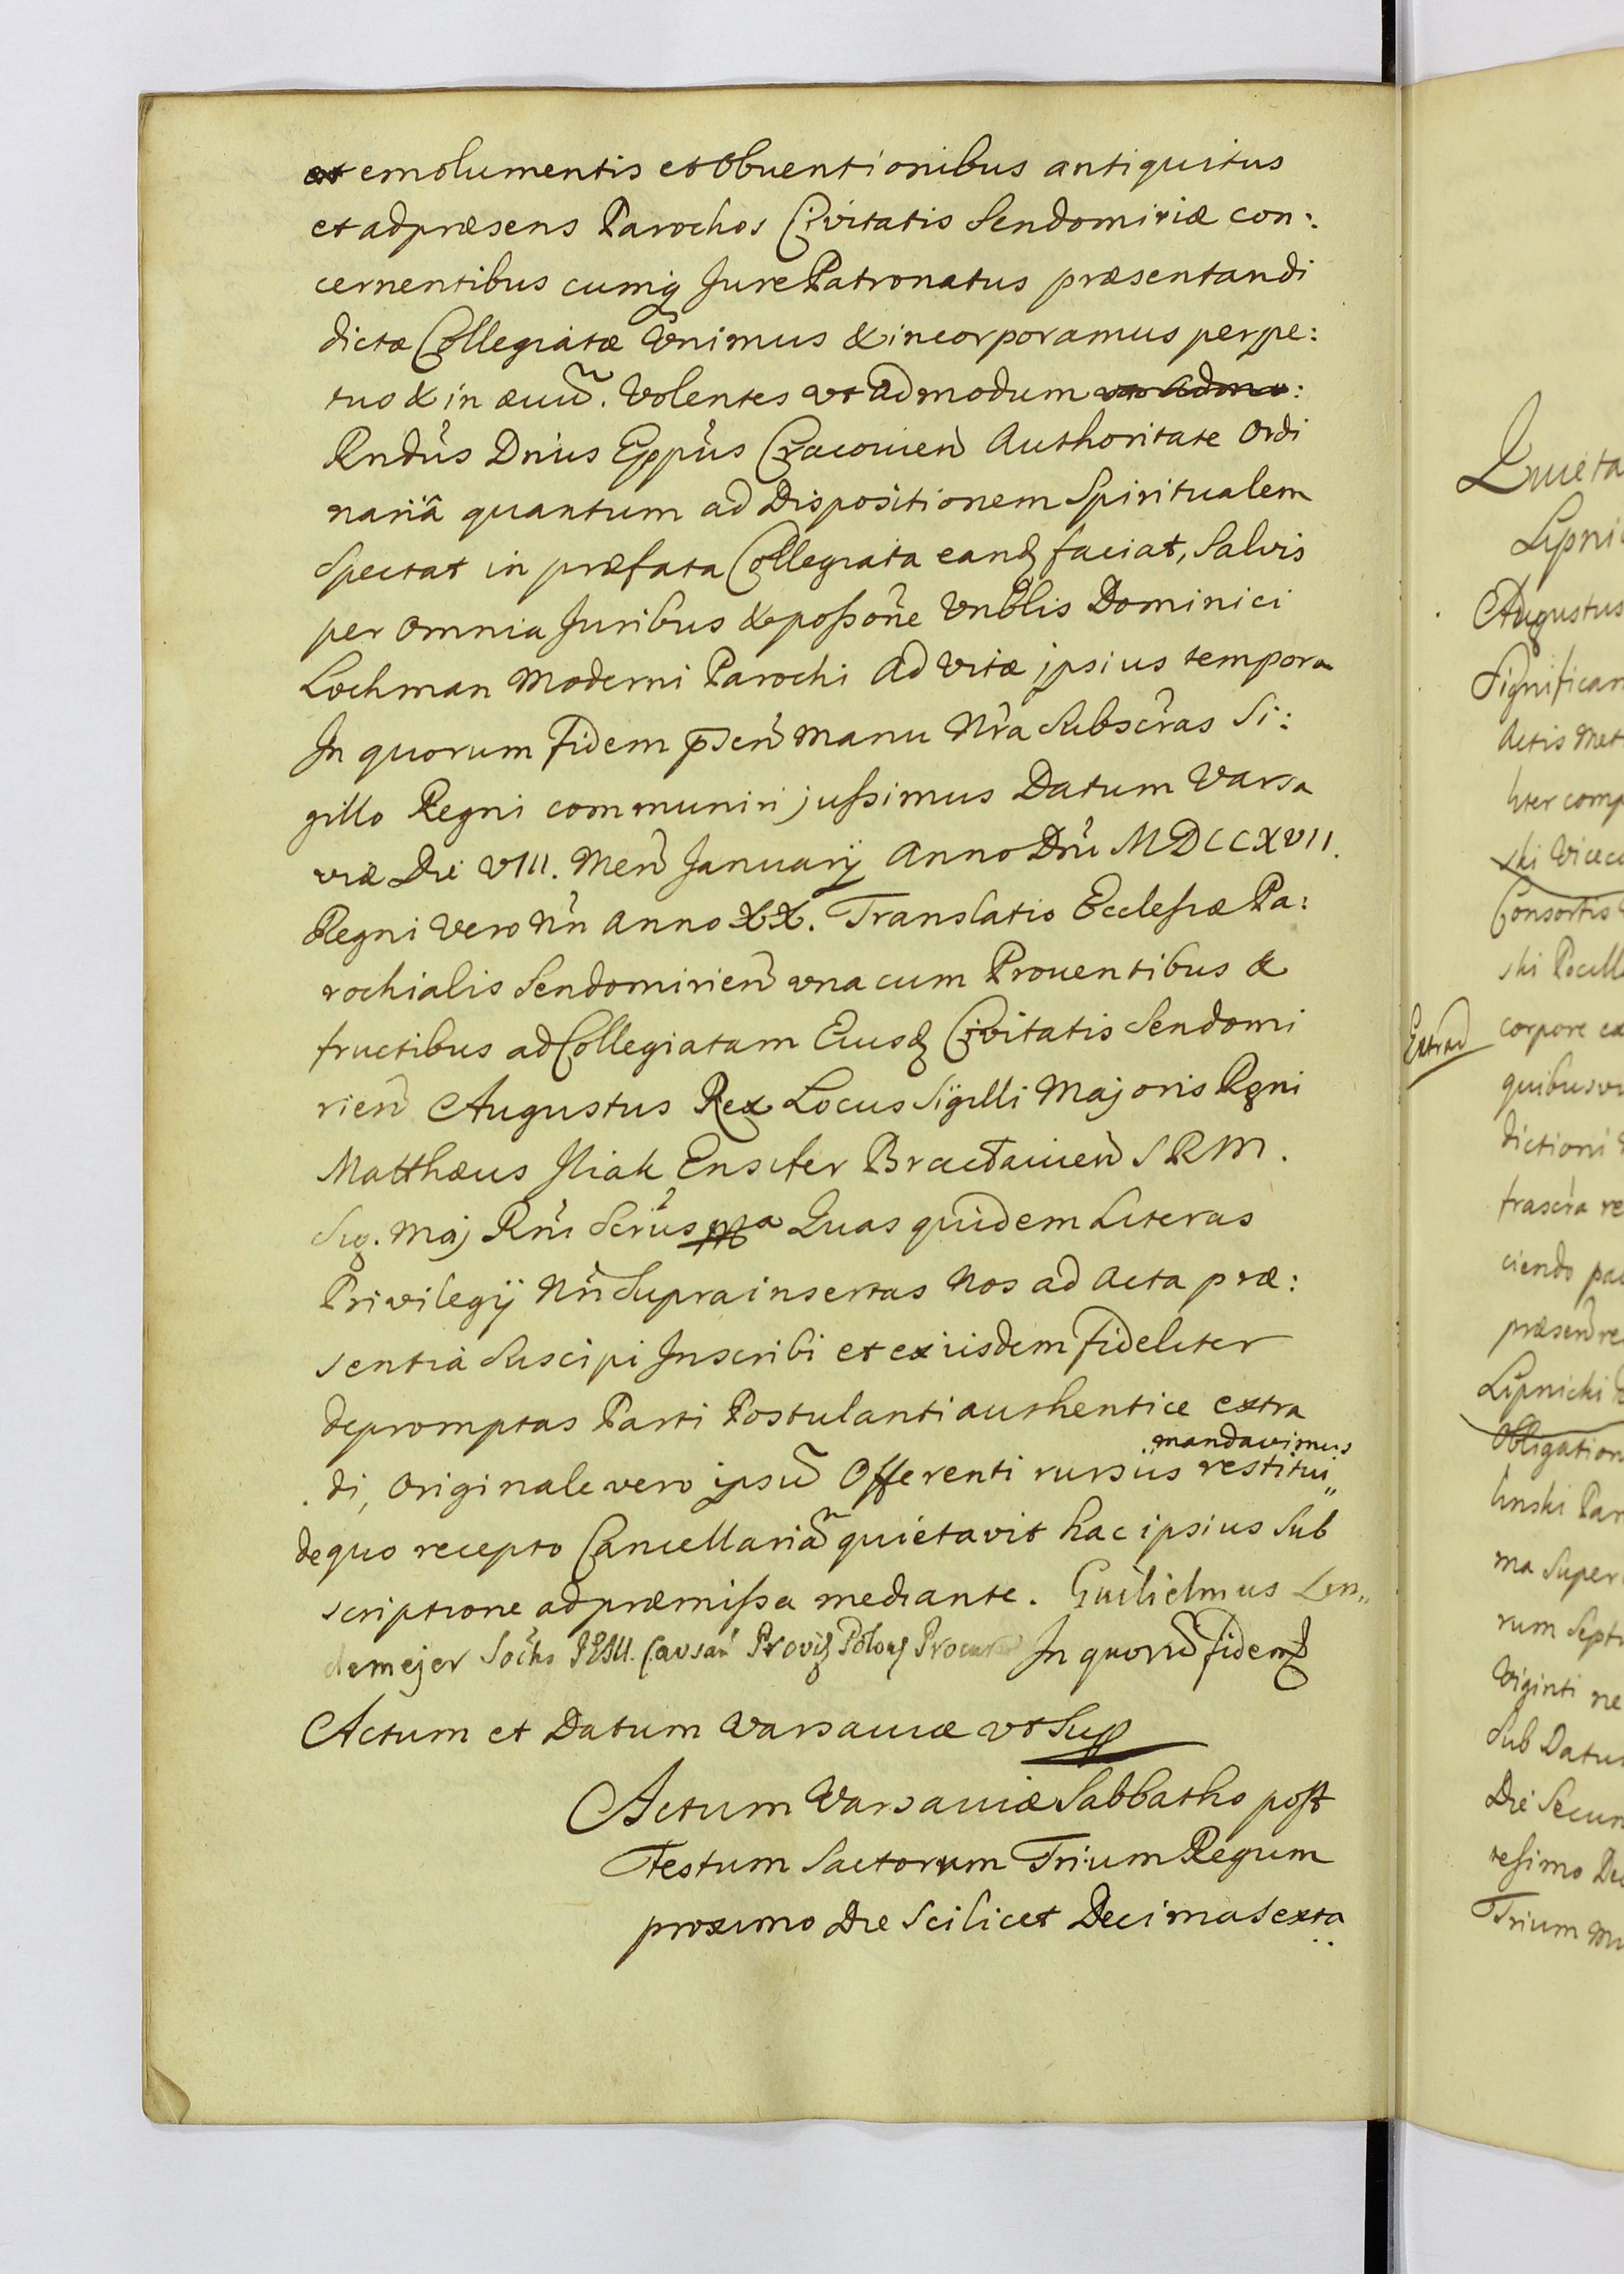 et emolumentis et Obuentionibus antiquitus
et ad præsens Parochos Civitatis Sendomiriæ con:
cernentibus cumq Jure Patronatus præsentandi
dictæ Collegiatæ Unimus & incorporamus perpe:
tuo & in æuũ. Volentes ut admodum
Rndus Dnus Eppus Cracouien Authoritate Ordi
nariâ quantum ad Dispositionem Spiritualem
Spectat in præfata Collegiata eand faciat, Salvis
per Omnia Juribus & possone Vnblis Dominici
Lochman Moderni Parochi ad vitæ jpsius tempora
In quorum Fidem psen manu Nra Subscras Si:
gillo Regni communiri jussimus Datum Varsa
viæ Die VIII. Men Januarij Anno Dni MDCCXVII.
Regni vero Nri Anno XX. Translatio Ecclesiæ Pa:
rochialis Sendomirien una cum Prouentibus &
fructibus ad Collegiatam Eiusd Civitatis Sendomi
rien Augustus Rex Locus Sigilli Majoris Rgni
Matthæus Iliak Ensifer Braclauien S R M.
Sig. Maj Rni Scrius mpa Quas quidem Literas
Privilegij Nri Supra insertas Nos ad Acta præ:
sentia Suscipi Inscribi et ex iisdem fideliter
depromptas Parti Postulanti authentice extra
mandavimus
di, Originale vero ipsũ Offerenti rursus restitui„
de quo recepto Cancellariã quietavit hac ipsius Sub
scriptione ad præmissa mediante. Guilielmus Lin„
demejer Socts JESU. Causar Provi Polo Procur In quorũ fidem
Actum et Datum Varsauiæ ut Sup
Actum Varsauiæ Sabbatho post
Festum Sactorum Trium Regum
proximo Die Scilicet Decima Sexta
Lipni
Augustus
Significam
Actis Met
liter comp
ski Vicec
Consortis
Extrad corpore ex
quibusvi
dictioni
frascra re
ciendo pa
præsen re
Lipnicki
Obligation
linski Par
ma Super
rum Septi
Viginti ne
Sub Datu
Die Secun
Trium